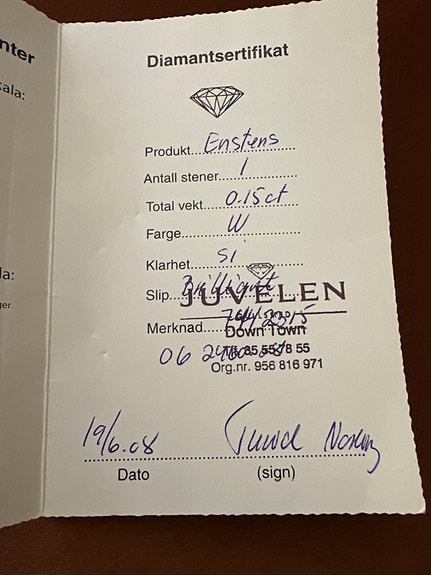 nter
ala:
la:
ger
Diamantsertifikat
Produkt... Enstens
Antall stener... 1
Total vekt... 0.15ct
Farge... W
Klarhet SI
Slip... Brilliant
JUVELEN
Merknad...
Down Town
Tlf. 35 55 78 55
Org.nr. 956 816 971
19/6.08
Dato (sign)